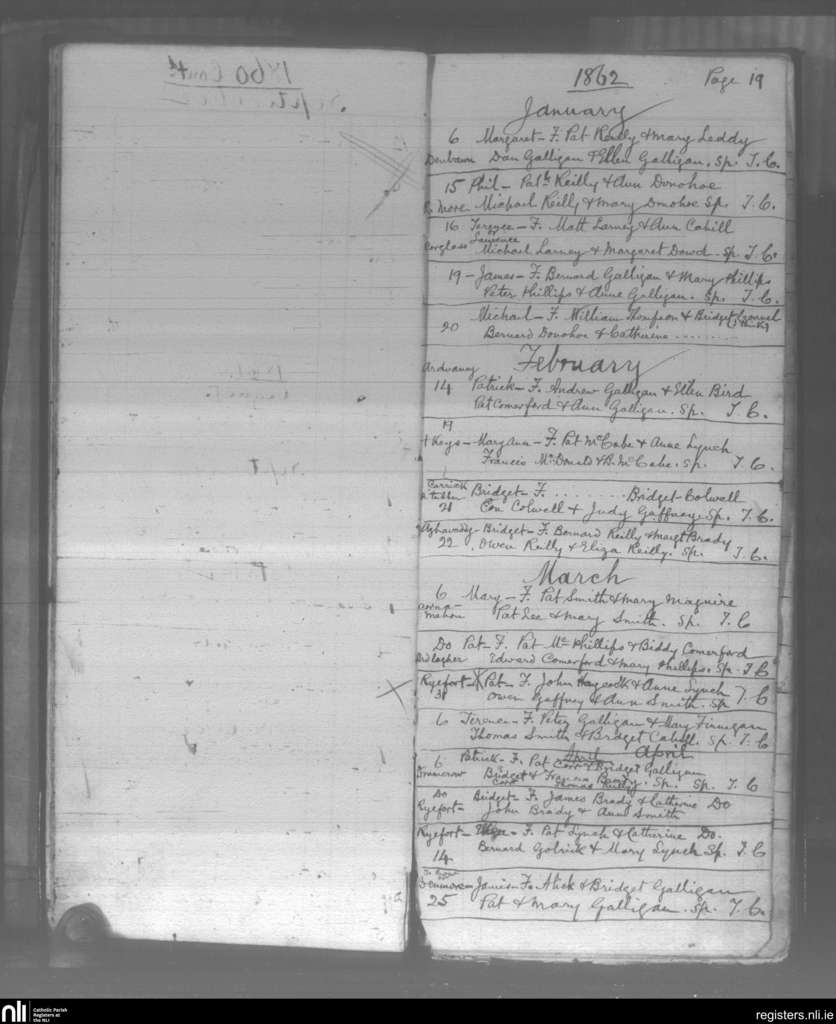 1862 Page 19
January
6 Margaret - F. Pat Reilly & Mary Leddy
Denbawn Dan Galligan & Ellen Galligan. Sp. T. C.
15 Phil - Patk Reilly & Ann Donohoe
R. More Michael Reilly & Mary Donohoe Sp. T. C.
16 - F. Matt Larney & Ann Cahill
Laurence
Corglass Michael Larney & Margaret Dowd - Sp. T. C.
19 - James - F. Bernard Galligan & Mary Phillips
Peter Phillips & Anne Galligan. Sp. T. C.
Michael - F. William Thompson & Bridget
20 Bernard Donohoe & Catherine ..........
February
Ardvaney
14 Patrick - F. Andrew Galligan & Ellen Bird
Pat Comerford & Ann Galligan. Sp. T. C.
Keys - Mary Ann - F. Pat McCabe & Anne Lynch
Francis McDonald & B. McCabe. Sp. T. C.
Carrick
Bridget - F. ........ Bridget Colwell
21 Con Colwell & Judy Gaffney. Sp. T. C.
Bridget - F. Bernard Reilly & Margt Brady
22 Owen Reilly & Eliza Reilly. Sp. T. C.
March
6 Mary - F. Pat Smith & Mary Maguire
Pat Lee & Mary Smith. Sp. T. C
Do Pat - F. Pat Mc Phillips & Biddy Comerford
Edward Comerford & Mary Phillips. Sp. T. C
Ryefort - X Pat - F. John Haycock & Anne Lynch
31 Owen Gaffney & Ann Smith. Sp T. C
6 Terence - F. Peter Galligan & Mary Finnegan
Thomas Smith & Bridget Cahill. Sp. T. C
April April
6 Patrick - F. Pat Corr & Bridget Galligan
Bridget & Brady. Sp. Sp. T. C
Do Bridget - F. James Brady & Catherine Do
Ryefort - John Brady & Ann Smith
Ryefort - F. Pat Lynch & Catherine Do.
14 Bernard Golrick & Mary Lynch Sp. T. C
James - F. Mick & Bridget Galligan
25 Pat & Mary Galligan. Sp. T. C.
nli Catholic Parish
Registers at
the NLI
registers.nli.ie